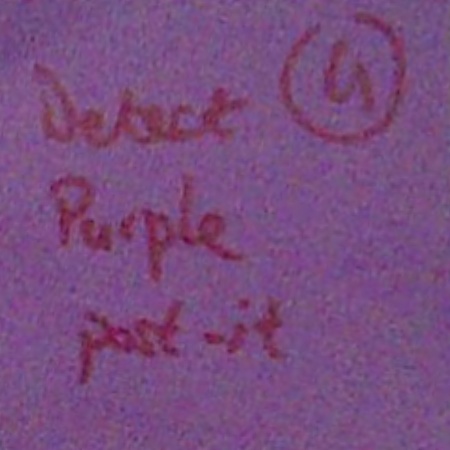 4
Detect
Purple
post-it